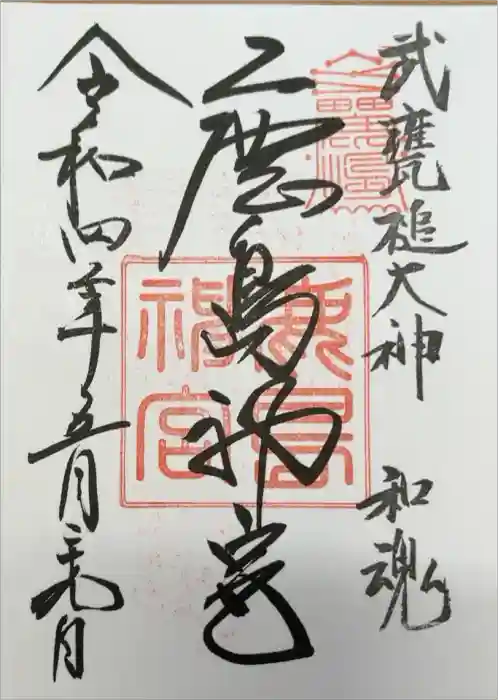 武甕槌大神　和魂
鹿島神宮
令和四年五月二十九日
鹿島
神宮